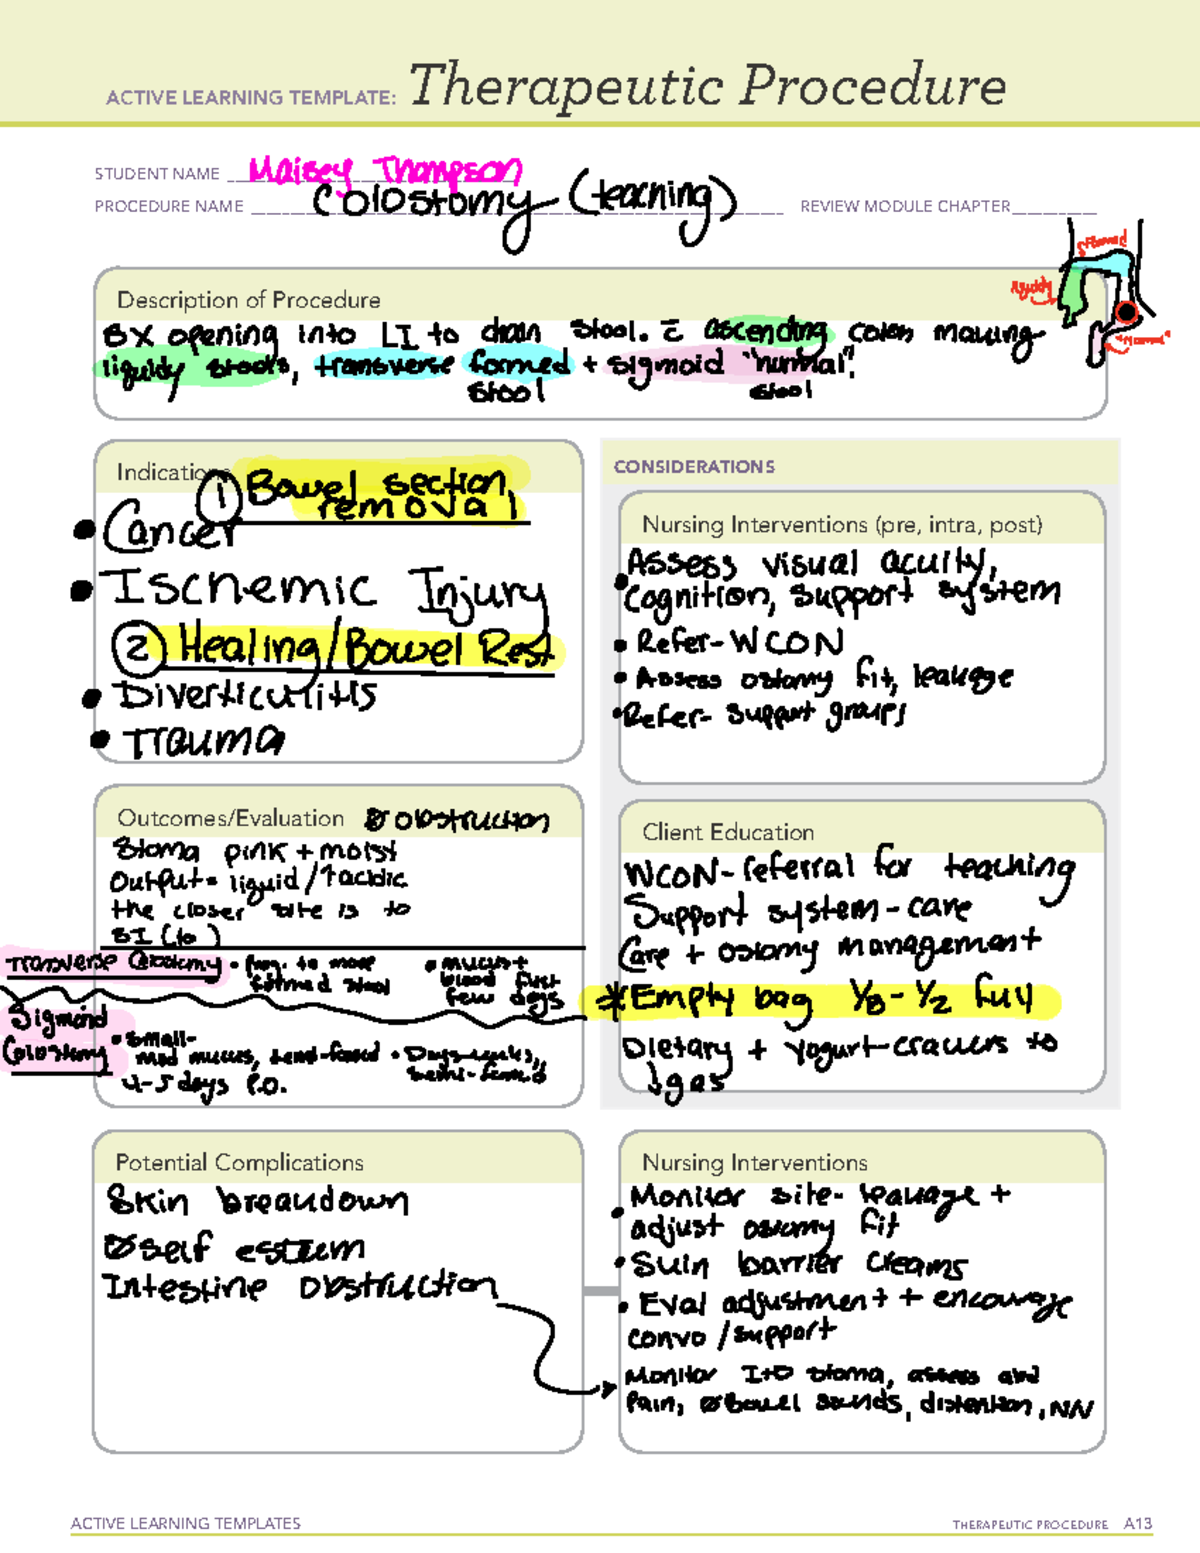 ACTIVE LEARNING TEMPLATE: Therapeutic Procedure
STUDENT NAME Maisey Thompson
PROCEDURE NAME Colostomy (teaching) REVIEW MODULE CHAPTER
Description of Procedure
SX opening into LI to drain stool. c̄ ascending colon making
liquidy stools, transverse formed + sigmoid "normal".
stool stool
formed
liquidy
"Normal"
Indications
① Bowel section
removal
• Cancer
• Ischemic Injury
② Healing/Bowel Rest
• Diverticulitis
• Trauma
CONSIDERATIONS
Nursing Interventions (pre, intra, post)
• Assess visual acuity,
cognition, support system
• Refer-WCON
• Assess ostomy fit, leakage
• Refer- support groups
Outcomes/Evaluation Ø obstruction
Stoma pink + moist
Output= liquid/↑acidic
the closer site is to
SI (to )
Transverse Colostomy • Prog. to more
formed stool
• mucus+
blood first
few days
Sigmoid
Colostomy
• Small-
mod mucus, semi-formed
4-5 days P.O.
• Days-weeks,
semi-formed
Client Education
WCON-referral for teaching
Support system-care
Care + ostomy management
*Empty bag ⅓-½ full
Dietary + yogurt-crackers to
↓gas
Potential Complications
Skin breakdown
Ø self esteem
Intestine obstruction
Nursing Interventions
• Monitor site- leakage +
adjust ostomy fit
• Skin barrier creams
• Eval adjustment + encourage
convo/support
Monitor I+O stoma, assess abd
Pain, Ø bowel sounds, distention, N/V
ACTIVE LEARNING TEMPLATES THERAPEUTIC PROCEDURE A13